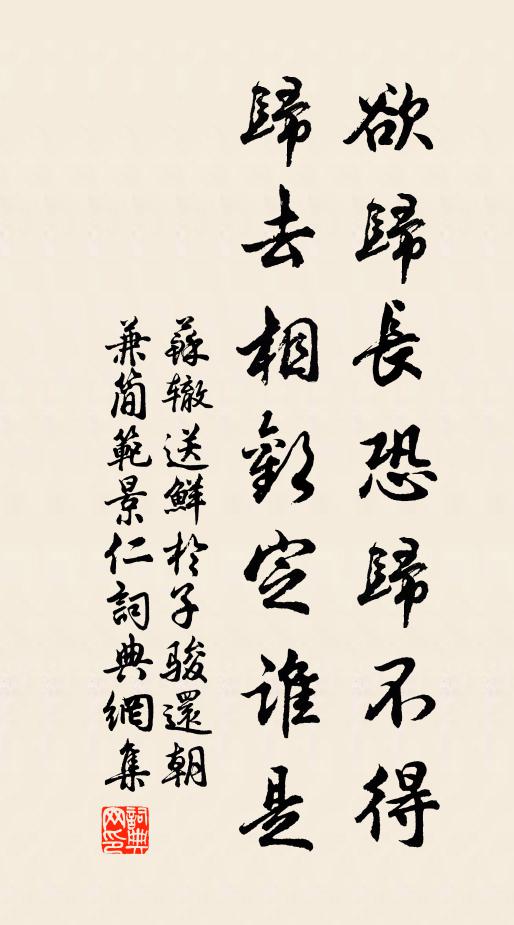 欲歸長恐歸不得
歸去相歡定誰是
蘇轍送鮮於子骏還朝
兼簡範景仁詞典網集
詞典
网印